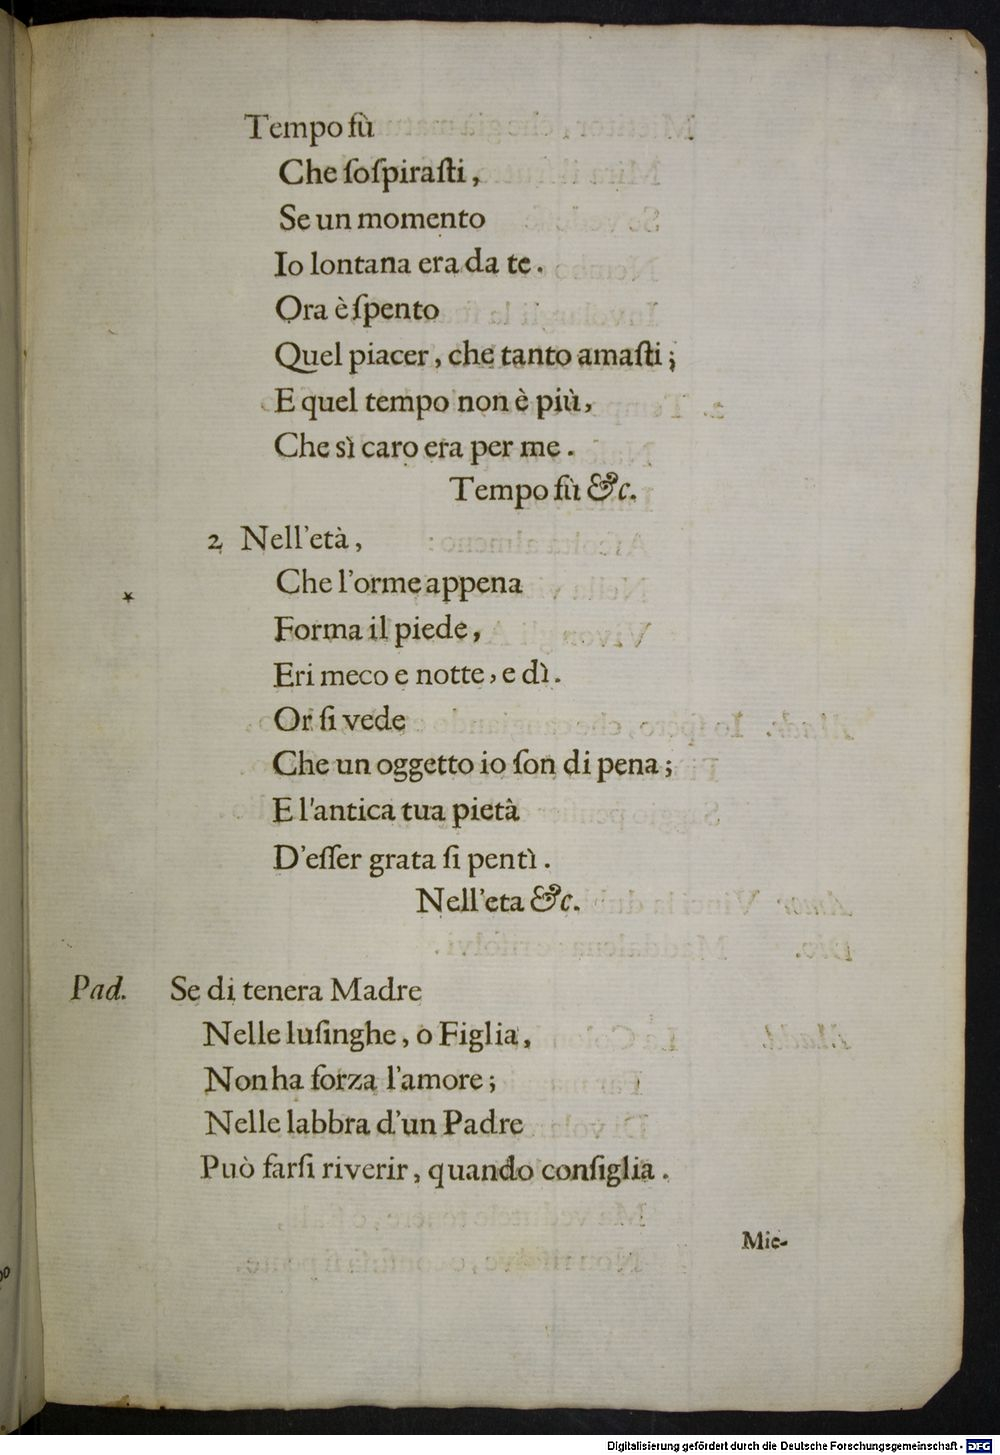 Tempo fù
Che ſoſpiraſti,
Se un momento
Io lontana era da te.
Ora è ſpento
Quel piacer, che tanto amaſti;
E quel tempo non è più,
Che sì caro era per me.
Tempo fù &c.
2 Nell'età,
Che l'orme appena
Forma il piede,
Eri meco e notte, e dì.
Or ſi vede
Che un oggetto io ſon di pena;
E l'antica tua pietà
D'eſſer grata ſi pentì.
Nell'eta &c.
Pad. Se di tenera Madre
Nelle luſinghe, o Figlia,
Non ha forza l'amore;
Nelle labbra d'un Padre
Può farſi riverir, quando conſiglia.
Mie-
Digitalisierung gefördert durch die Deutsche Forschungsgemeinschaft - DFG